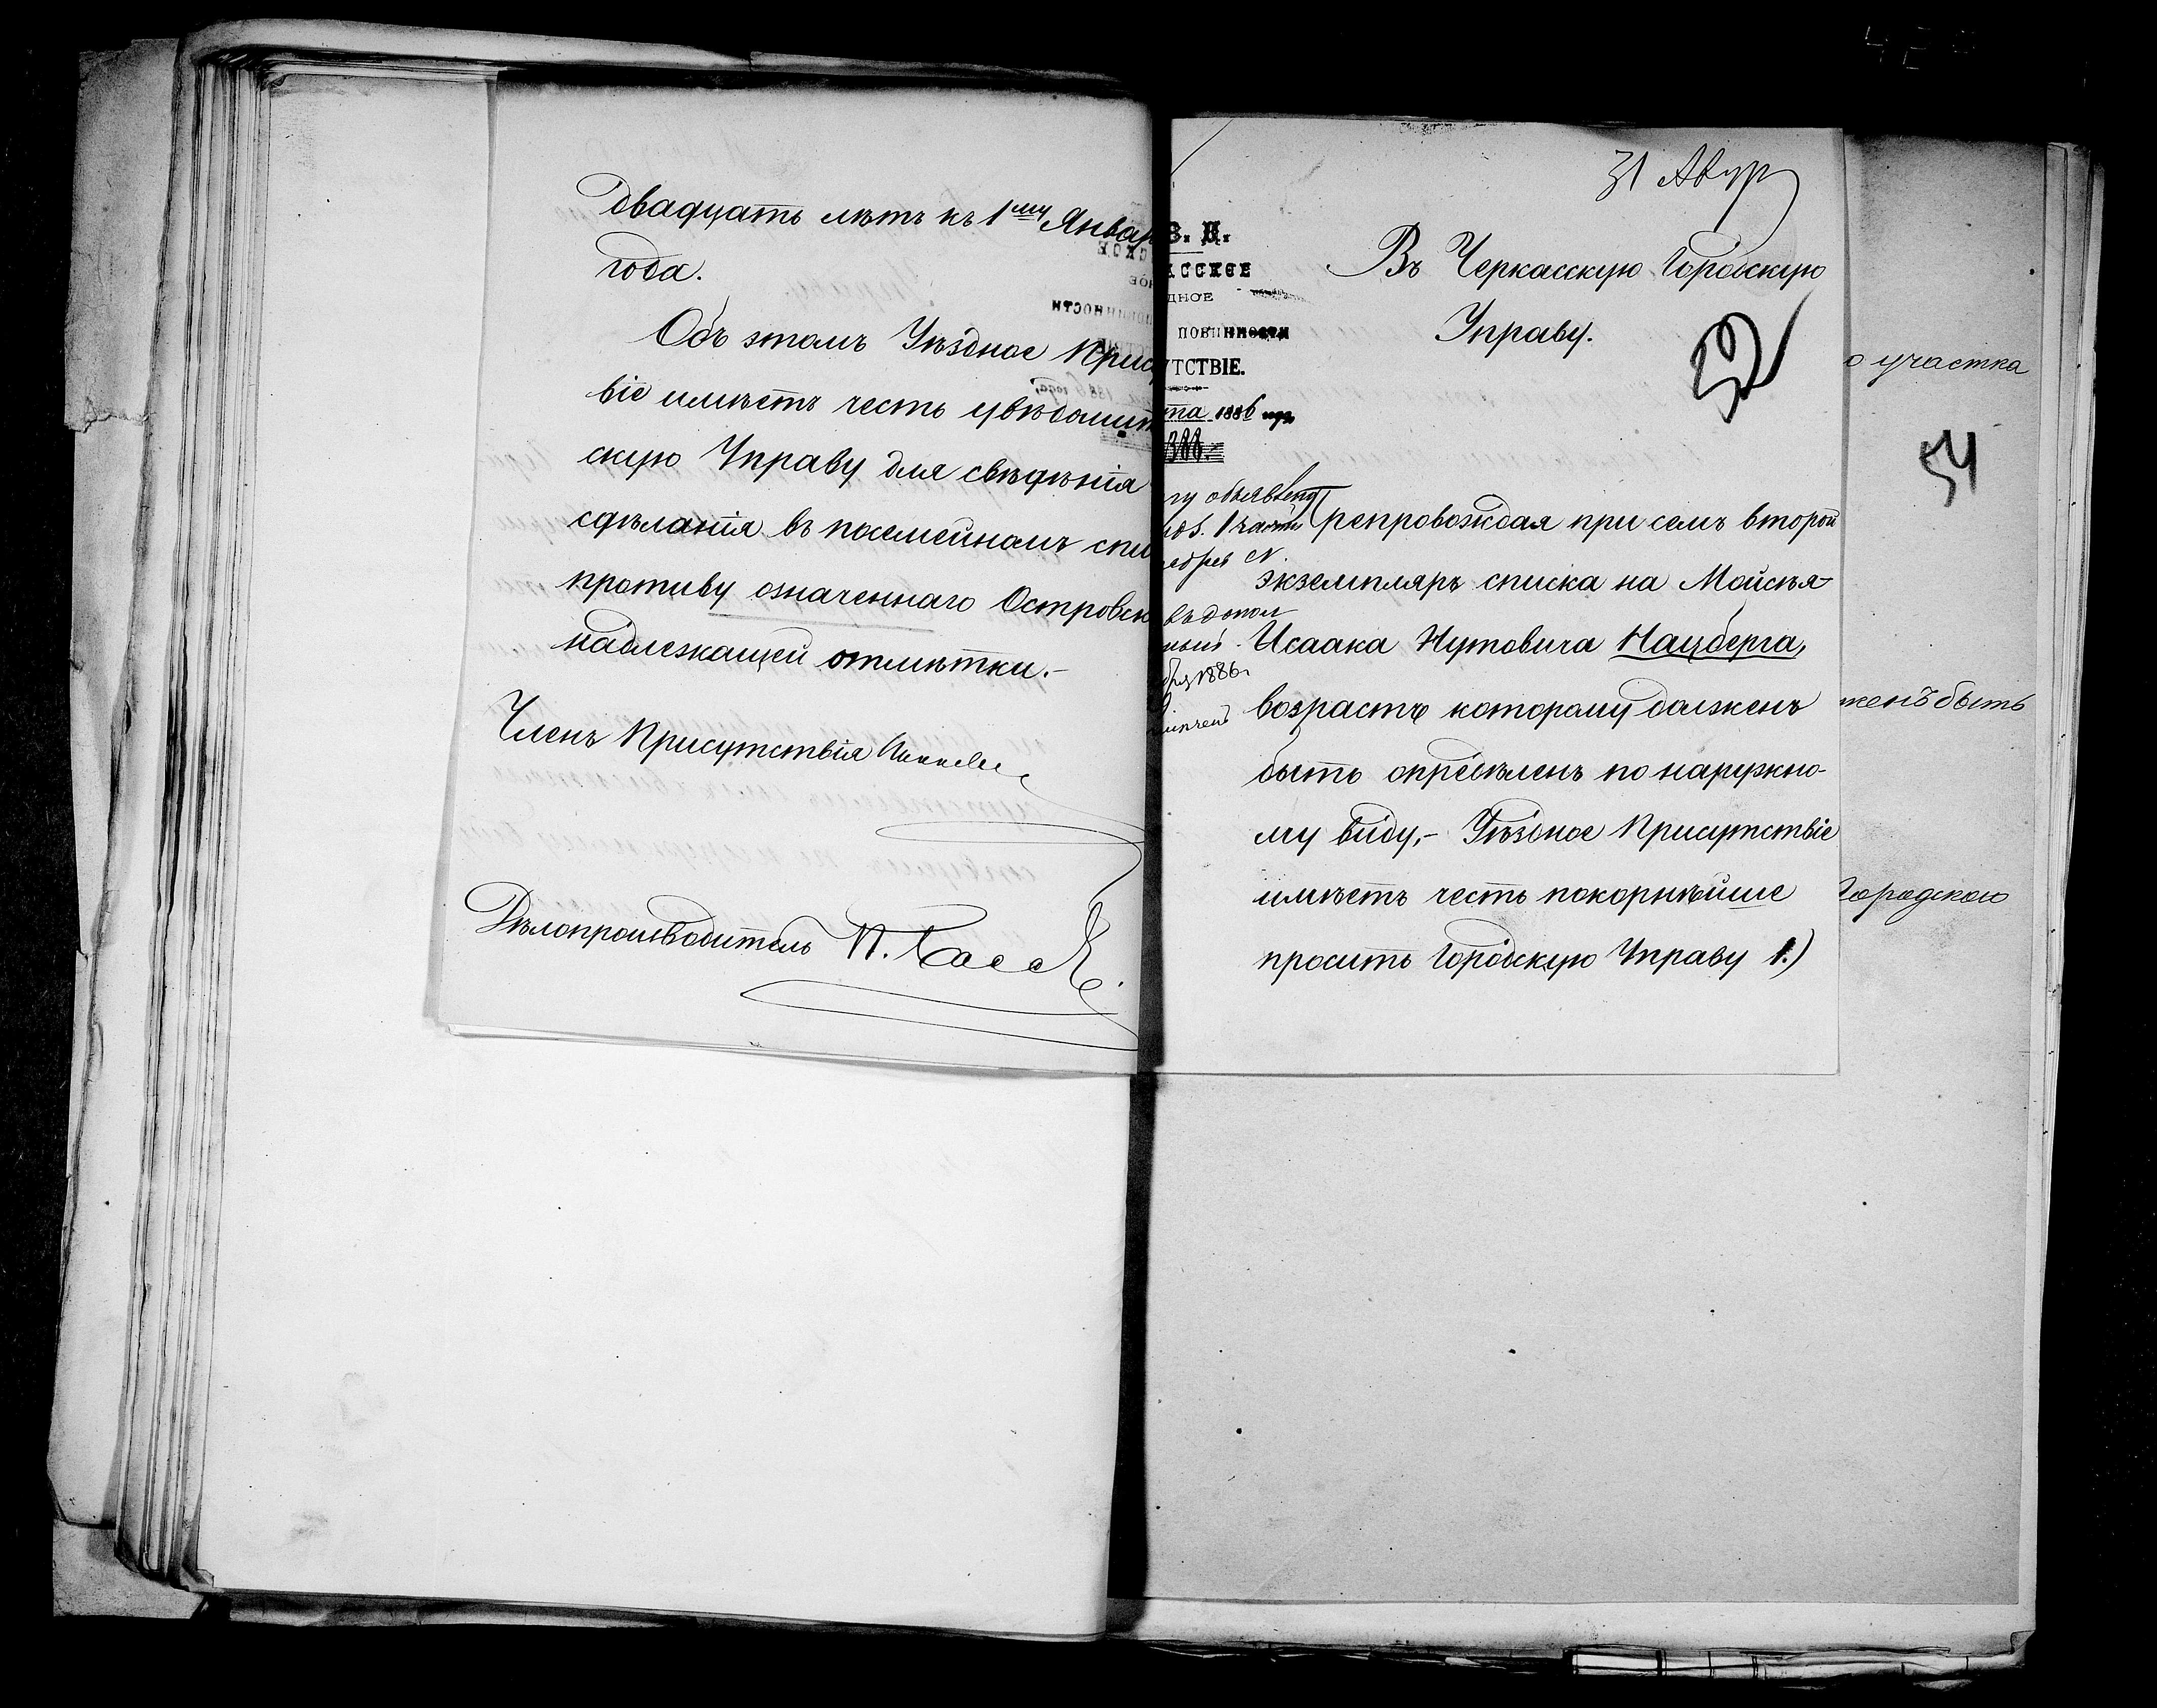 двадцать лѣтъ къ 1му Январ
года.
Объ этомъ Уѣздное Прис
віе имѣетъ честь увѣдомит
скую Управу для свѣдѣнія
сдѣланія въ посемейномъ спи
противу означеннаго Островск
надлежащей отмѣтки.-
Членъ Присутствія
Дѣлопроизводитель П.
31 Авг
В. П.
КССКОЕ
ДНОЕ
ПОВИННОСТИ
УТСТВІЕ.
та 1886 года
388.
Въ Черкасскую Городскую
Управу.
52
Препровождая при семъ второй
экземпляръ списка на Мойсѣя-
Исаака Нутовича Нацберга,
возрастъ которому долженъ
быть опредѣленъ по наружно-
му виду,- Уѣздное Присутствіе
имѣетъ честь покорнѣйше
просить Городскую Управу 1.)
му объявлено
1886
о участка
54
женъ быть
Городскою